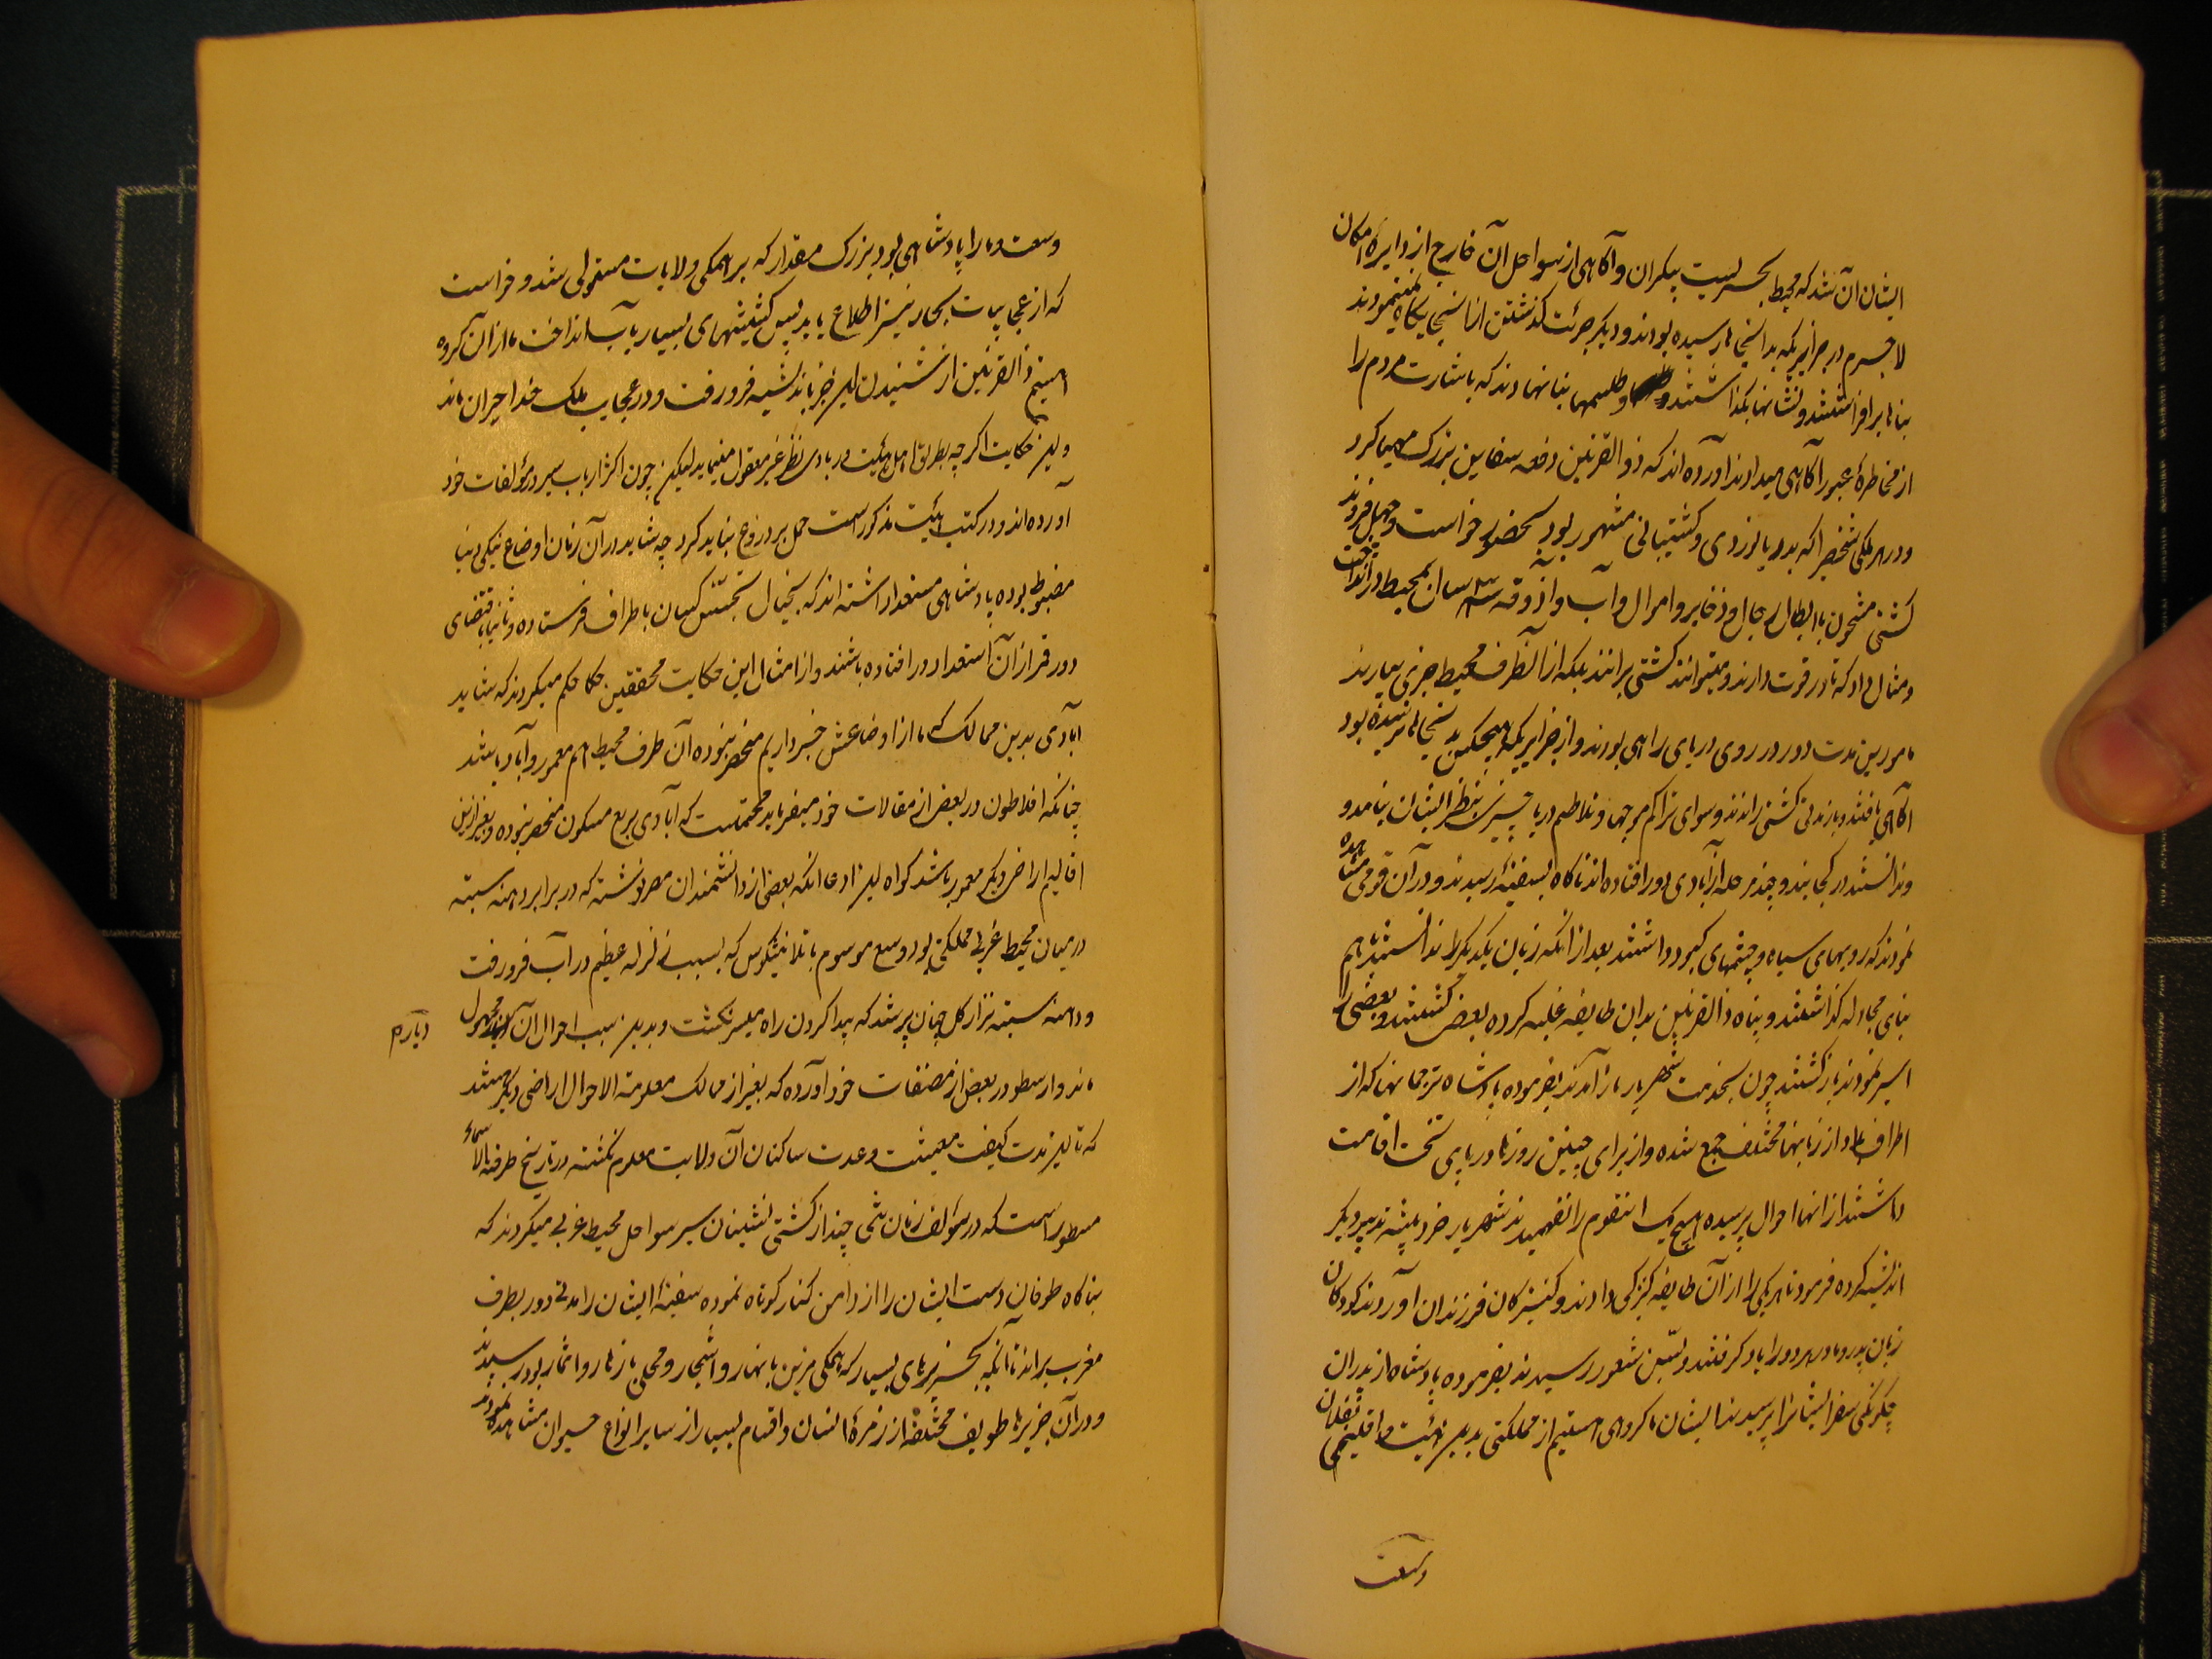 ایشان آن شد که محیط بحریست بیکران و آکاهی از سواحل آن خارج از دایرهٔ امکان
لاجرم در جزایریکه بدانجا رسیده بودند و دیکر جرئت کذشتن از انجایکاه نمینمودند
بناها برافراشتند و نشانها بکذاشتند و طلسمها بنا نهادند که باشارت مردم را
از مخاطرهٔ عبور آکاهی میدادند آورده‌اند که ذوالقرنین دفعه سفاین بزرک مهیا کرد
و در هر ملکی شخصیرا که بدریا نوردی و کشتیبانی مشهور بود بحضور خواست و چهل فروند
کشتی مشحون با ابطال رجال و ذخایر و اموال و آب و آذوقه سه سال بمحیط در انداخت
و مثال داد که تا در قوت دارند و میتوانند کشتی برانند بلکه از آنطرف محیط خبری بیارند
مامورین مدت دور در روی دریای راهی بودند و از جزایریکه هیچکس بدانجاها نرسیده بود
آکاهی یافتند و باز مدتی کشتی راندند و سوای تراکم موجها و تلاطم دریا چیزی بنظر ایشان نیامد و
ندانستند در کجایند و چند مرحله از آبادی دور افتاده‌اند ناکاه بسفینهٔ رسیدند و در آن قومی مشاهده
نمودند که رویهای سیاه و چشمهای کبود داشتند بعد از انکه زبان یکدیکر را ندانستند با هم
بنای مجادله کذاشتند و سپاه ذالقرنین بدان طایفه غلبه کرده بعضی کشتند و بعضی را
اسیر نمودند بازکشتند چون بخدمت شهریار باز آمدند بفرموده پادشاه ترجمانها که از
اطراف بلاد از زبانها مختلف جمع شده و از برای چنین روزها در پای تخت اقامت
داشتند از انها احوال پرسیده هیچ یک انقوم را نفهمیدند شهریار خرد پیشه تدبیر دیکر
اندیشه کرده فرمود تا هر یکی را از آن طایفه کنیزکی دادند و کنیزکان فرزندان آوردند کودکان
زبان پدر و مادر هر دو را یاد کرفتند و بسن شعور رسیدند بفرموده پادشاه از پدران
چکونکی سفر ایشانرا پرسیدند ایشان ما کروهی هستیم از مملکتی بدین هیئت و اقلیمی
وسعت
وسعت و ما را پادشاهی بود بزرک مقدار که بر همکی ولایات مستولی شد و خواست
که از عجایبات بحار نیز اطلاع یابد پس کشتیهای بسیار بآب انداخت ما از آن کروه
هستیم ذالقرنین از شنیدن این خبر باندیشه فرو رفت و در عجایب ملک خدا حیران ماند
و این حکایت اکرچه بطریق اهل هیئت در بادی نظر غیر معقول مینماید لیکن چون اکثر ارباب سیر در مؤلفات خود
آورده‌اند و در کتب هیئت مذکور است حمل بر دروغ نباید کرد چه شاید در آن زمان اوضاع نیکی دنیا
مضبوط بوده پادشاهی مستعد داشته‌اند که بخیال تجسس کسان باطراف فرستاده و ثانیا باقتضای
دور قمر از آن استعداد ور افتاده باشند و از امثال این حکایت محققین حکما حکم میکردند که شاید
آبادی بدین ممالک که ما از اوضاعش خبر داریم منحصر نبوده آن طرف محیط هم معمور و آباد باشد
چنانکه افلاطون در بعضی از مقالات خود میفرماید محتملست که آبادی بربع مسکون منحصر نبوده و بغیر ازین
اقالیم اراضی دیکر معمور باشد کواه این ادعا انکه بعضی از دانشمندان مصر نوشته که در برابر دهنه سبته
در میان محیط غربی مملکتی بود وسیع موسوم باتلانتیکوس که بسبب زلزله عظیم در آب فرو رفت
و دهنه سبته نیز از کل چنان پر شد که پیدا کردن راه میسر نکشت و بدین سبب احوال آن مجهول
دیار هم
ماند و ارسطو در بعضی از مصنفات خود آورده که بغیر از ممالک معلومة الاحوال اراضی دیکر هستند
که تا این مدت کیفیت معیشت و عدت ساکنان آن ولایت معلوم نکشته در تاریخ طرفه الاسماء
مسطور است که در سوالف زمان تنی چند از کشتی نشینان سیر سواحل محیط غربی میکردند که
بناکاه طوفان دست ایشان را از دامن کنار کوتاه نموده سفینه ایشان را مدتی دور بطرف
مغرب براند تا آنکه بجزیرهای بسیار که همکی مزین بانهار و اشجار و محلی بازهار و اثمار بود رسیدند
و در آن جزیرها طوایف مختلفه از زمرهٔ انسان و اقسام بسیار از سایر انواع حیوان مشاهده نمودند